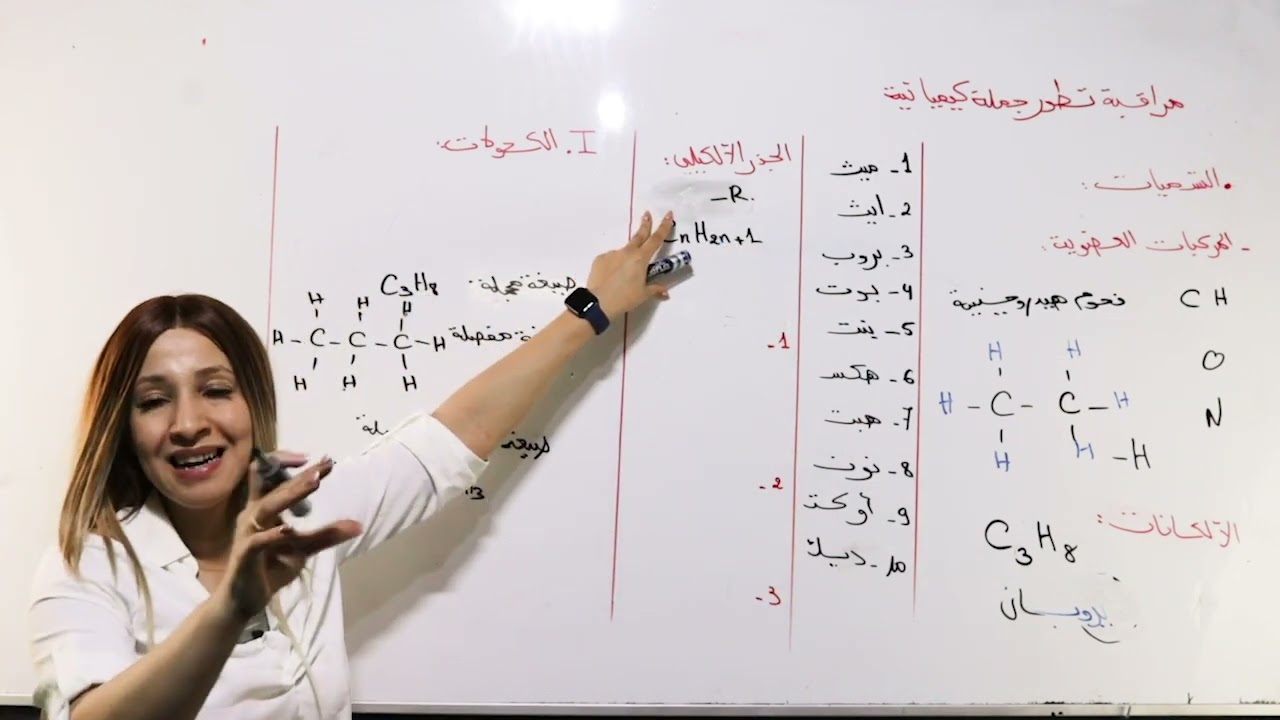 مراقبة تطور جملة كيميائية
• التسميات:
- المركبات العضوية:
C H فحوم هيدروجينية
O
N
H H
H - C - C - H
H H - H
الألكانات:
C3H8
بروبان
1- ميث
2- ايث
3- بروب
4- بوت
5- بنت
6- هكس
7- هبت
8- نون
9- أوكت
10- ديك
الجذر الألكيلي:
-R.
CnH2n+1
-1
-2
-3
I. الكحولات:
C3H8 صيغة مجملة
H H H
H - C - C - C - H مفصلة
H H H
صيغة